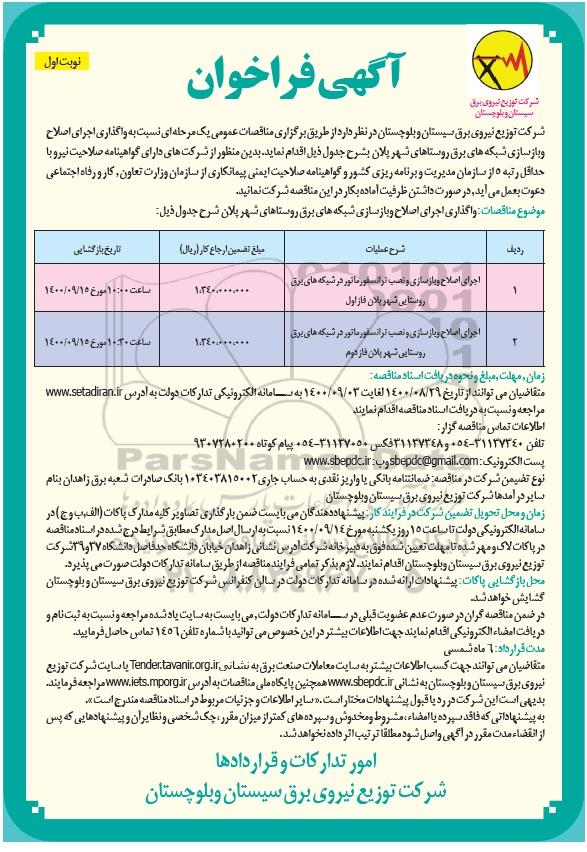 آگهی فراخوان
نوبت اول
شرکت توزیع نیروی برق
سیستان و بلوچستان
شرکت توزیع نیروی برق سیستان و بلوچستان در نظر دارد از طریق برگزاری مناقصات عمومی یک مرحله ای نسبت به واگذاری اجرای اصلاح
و بازسازی شبکه های برق روستاهای شهر پلان بشرح جدول ذیل اقدام نماید. بدین منظور از شرکت های دارای گواهینامه صلاحیت نیرو با
حداقل رتبه ۵ از سازمان مدیریت و برنامه ریزی کشور و گواهینامه صلاحیت ایمنی پیمانکاری از سازمان وزارت تعاون، کار و رفاه اجتماعی
دعوت بعمل می آید، در صورت داشتن ظرفیت آماده بکار در این مناقصه شرکت نمائید.
موضوع مناقصات: واگذاری اجرای اصلاح و بازسازی شبکه های برق روستاهای شهر پلان شرح جدول ذیل:
ردیف شرح عملیات مبلغ تضمین ارجاع کار (ریال) تاریخ بازگشایی
۱ اجرای اصلاح و بازسازی و نصب ترانسفورماتور در شبکه های برق روستایی شهر پلان فاز اول ۱،۳۴۰،۰۰۰،۰۰۰ ساعت ۱۰:۰۰ مورخ ۱۴۰۰/۰۹/۱۵
۲ اجرای اصلاح و بازسازی و نصب ترانسفورماتور در شبکه های برق روستایی شهر پلان فاز دوم ۱،۳۴۰،۰۰۰،۰۰۰ ساعت ۱۰:۳۰ مورخ ۱۴۰۰/۰۹/۱۵
زمان، مهلت، مبلغ و نحوه دریافت اسناد مناقصه:
متقاضیان می توانند از تاریخ ۱۴۰۰/۰۸/۲۹ لغایت ۱۴۰۰/۰۹/۰۳ به سامانه الکترونیکی تدارکات دولت به آدرس www.setadiran.ir
مراجعه و نسبت به دریافت اسناد مناقصه اقدام نمایند
اطلاعات تماس مناقصه گزار:
تلفن ۳۱۱۳۷۳۴۰-۰۵۴ و ۳۱۱۳۷۳۴۸ فکس ۳۱۱۳۷۰۵۰-۰۵۴ پیام کوتاه ۹۳۰۷۲۸۰۲۰۰
پست الکترونیک: sbepdc@gmail.com وب: www.sbepdc.ir
نوع تضمین شرکت در مناقصه: ضمانتنامه بانکی یا واریز نقدی به حساب جاری ۰۱۰۳۴۰۳۸۱۵۰۰۲ بانک صادرات شعبه برق زاهدان بنام
سایر درآمدها شرکت توزیع نیروی برق سیستان و بلوچستان
زمان و محل تحویل تضمین شرکت در فرایند کار: پیشنهاددهندگان می بایست ضمن بارگذاری تصاویر کلیه مدارک پاکات (الف، ب و ج) در
سامانه الکترونیکی دولت تا ساعت ۱۵ روز یکشنبه مورخ ۱۴۰۰/۰۹/۱۴ نسبت به ارسال اصل مدارک مطابق شرایط درج شده در اسناد مناقصه
در پاکات لاک و مهر شده تا مهلت تعیین شده فوق به دبیرخانه شرکت آدرس نشانی زاهدان خیابان دانشگاه حدفاصل دانشگاه ۳۷ و ۳۹ شرکت
توزیع نیروی برق سیستان و بلوچستان اقدام نمایند. لازم بذکر تمامی فرایند مناقصه از طریق سامانه تدارکات دولت صورت می پذیرد.
محل بازگشایی پاکات: پیشنهادات ارائه شده در سامانه تدارکات دولت در سالن کنفرانس شرکت توزیع نیروی برق سیستان و بلوچستان
گشایش خواهد شد.
در ضمن مناقصه گران در صورت عدم عضویت قبلی در سامانه تدارکات دولت، می بایست به سایت یاد شده مراجعه و نسبت به ثبت نام و
دریافت امضاء الکترونیکی اقدام نمایند جهت اطلاعات بیشتر در این خصوص می توانید با شماره تلفن ۱۴۵۶ تماس حاصل فرمایید.
مدت قرارداد: ۶ ماه شمسی
متقاضیان می توانند جهت کسب اطلاعات بیشتر به سایت معاملات صنعت برق به نشانی Tender.tavanir.org.ir یا سایت شرکت توزیع
نیروی برق سیستان و بلوچستان به نشانی www.sbepdc.ir همچنین پایگاه ملی مناقصات به آدرس www.iets.mporg.ir مراجعه فرمایند.
بدیهی است این شرکت در رد یا قبول پیشنهادات مختار است. «سایر اطلاعات و جزئیات مربوط در اسناد مناقصه مندرج است».
به پیشنهاداتی که فاقد سپرده یا امضاء، مشروط و مخدوش و سپرده های کمتر از میزان مقرر، چک شخصی و نظایر آن و پیشنهادهایی که پس
از انقضاء مدت مقرر در آگهی واصل شود مطلقا ترتیب اثر داده نخواهد شد.
امور تدارکات و قراردادها
شرکت توزیع نیروی برق سیستان و بلوچستان